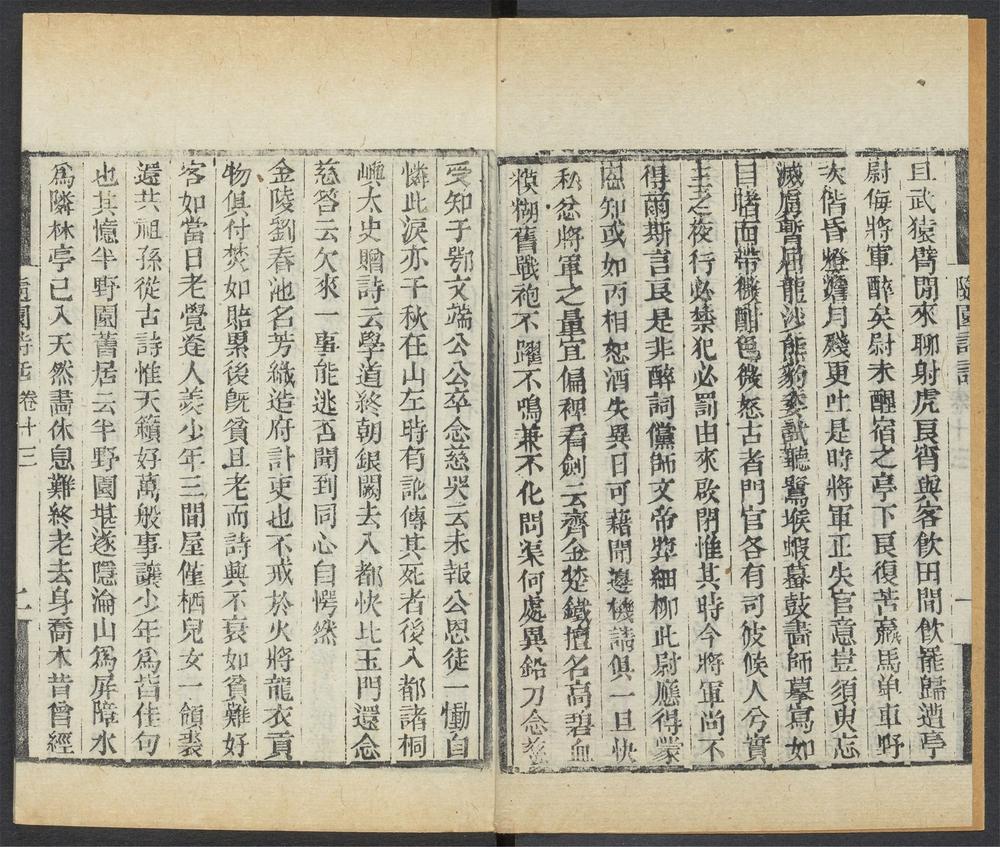 隨園詩話
一
且武猿臂閒來聊射虎良宵與客飲田間飲罷歸遭亭
尉侮將軍醉矣尉未醒宿之亭下良復苦羸馬單車野
次偕昏燈澹月殘更吐是時將軍正失官意豈須臾忘
滅虜暫屈龍沙熊豹委試聽鷺堠蝦蟇鼓畵師摹寫如
目睹面帶微酣色微怒古者門官各有司彼候人兮實
主之夜行必禁犯必罰由來啟閉惟其時今將軍尚不
得爾斯言良是非醉詞儻師文帝奬細柳此尉應得蒙
恩知或如丙相恕酒失異日可藉聞邊機請俱一旦快
私忿將軍之量宜偏稗看劍云齊金楚鐵擅名高碧血
糢糊舊戰袍不躍不鳴兼不化問渠何處異鉛刀念慈
受知于鄂文端公公卒念慈哭云未報公恩徒一慟自
憐此淚亦千秋在山左時有訛傳其死者後入都諸桐
嶼太史贈詩云學道終朝銀闕去入都快比玉門還念
慈答云欠來一事能逃否聞到同心自愕然
金陵劉春池名芳織造府計吏也不戒於火將龍衣貢
物俱付焚如賠累後旣貧且老而詩興不衰如貧難好
客如當日老覺逢人羨少年三間屋僅栖兒女一領裘
還共祖孫從古詩惟天籟好萬般事讓少年爲皆佳句
也其憶半野園舊居云半野園堪遂隱淪山爲屏障水
爲隣林亭已入天然畵休息難終老去身喬木昔曾經
隨園詩話
卷十三
二